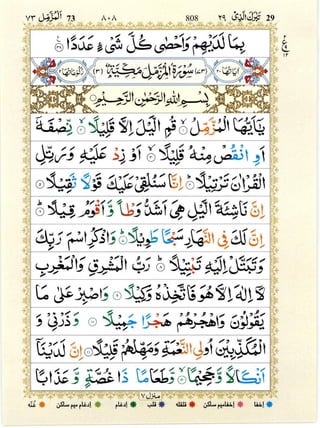 ٧٣ المزمل 73 ٨٠٨ 808 ٢٩ تبرك الذي 29
بِمَا لَدَيْهِمْ وَاَحْصٰى كُلَّ شَىْءٍ عَدَدًا
سُوْرَةُ الْمُزَّمِّلِ مَكِّيَّةٌ
بِسْمِ اللّٰهِ الرَّحْمٰنِ الرَّحِيْمِ
يٰۤاَيُّهَا الْمُزَّمِّلُ ۙ قُمِ الَّيْلَ اِلَّا قَلِيْلًا ۙ نِّصْفَهٗۤ
اَوِ انْقُصْ مِنْهُ قَلِيْلًا ۙ اَوْ زِدْ عَلَيْهِ وَرَتِّلِ
الْقُرْاٰنَ تَرْتِيْلًا ؕ اِنَّا سَنُلْقِىْ عَلَيْكَ قَوْلًا ثَقِيْلًا
اِنَّ نَاشِئَةَ الَّيْلِ هِىَ اَشَدُّ وَطْاً وَّاَقْوَمُ قِيْلًا ؕ
اِنَّ لَكَ فِى النَّهَارِ سَبْحًا طَوِيْلًا ؕ وَاذْكُرِ اسْمَ رَبِّكَ
وَتَبَتَّلْ اِلَيْهِ تَبْتِيْلًا ؕ رَبُّ الْمَشْرِقِ وَالْمَغْرِبِ
لَاۤ اِلٰهَ اِلَّا هُوَ فَاتَّخِذْهُ وَكِيْلًا وَاصْبِرْ عَلٰى مَا
يَقُوْلُوْنَ وَاهْجُرْهُمْ هَجْرًا جَمِيْلًا وَ ذَرْنِىْ وَ
الْمُكَذِّبِيْنَ اُولِى النَّعْمَةِ وَمَهِّلْهُمْ قَلِيْلًا اِنَّ لَدَيْنَاۤ
اَنْكَالًا وَّجَحِيْمًا ۙ وَّطَعَامًا ذَا غُصَّةٍ وَّ عَذَابًا
منزل ٧
اخفا اخفا میم ساکن قلقلہ قلب ادغام ادغام میم ساکن غنہ